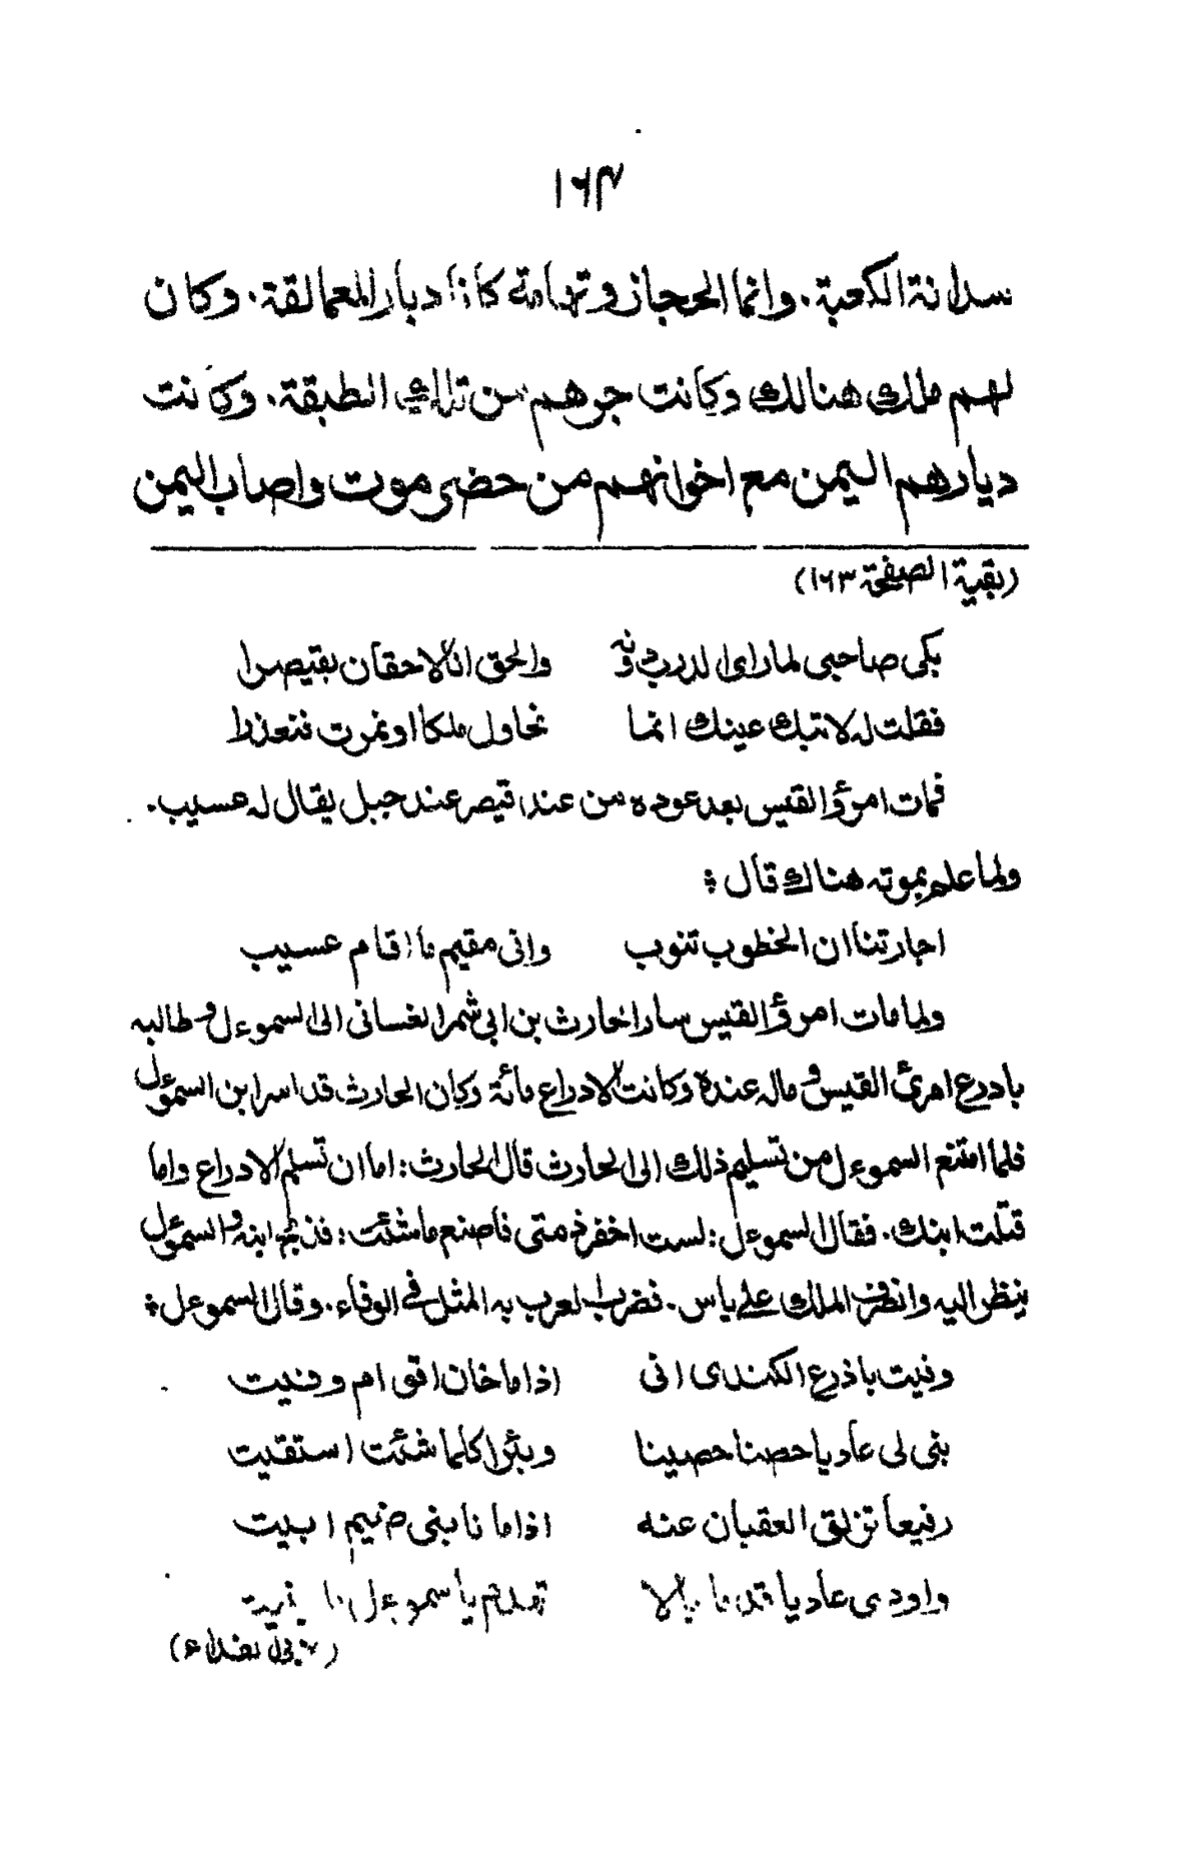 ١٦٤
سدانة الكعبة. وانما الحجاز وتهامة كانا ديار العمالقة. وكان
لهم ملك هنالك وكانت جرهم من تلك الطبقة. وكانت
ديارهم اليمن مع اخوانهم من حضرموت واصاب اليمن
(بقية الصفحة ١٦٣)
بكى صاحبي لما راى الدرب دونه والحق انا لاحقان بقيصرا
فقلت له لا تبك عينك انما نحاول ملكا او نموت فنعذرا
فمات امرؤ القيس بعد عوده من عند قيصر عند جبل يقال له عسيب.
ولما علم بموته هناك قال :
اجارتنا ان الخطوب تنوب واني مقيم ما اقام عسيب
ولما مات امرؤ القيس سار الحارث بن ابي شمر الغسانى الى السموءل وطالبه
بادرع امرئ القيس وماله عنده وكانت الادراع مائة وكان الحارث قد اسر ابن السموءل
فلما امتنع السموءل من تسليم ذلك الى الحارث قال الحارث: اما ان تسلم الادراع واما
قتلت ابنك. فقال السموءل: لست اخفر ذمتي فاصنع ما شئت: فذبح ابنه والسموءل
ينظر اليه وانصرف الملك على ياس. فضرب العرب به المثل في الوفاء. وقال السموءل :
وفيت باذرع الكندى انى اذا ما خان اقوام وفيت
بنى لى عاديا حصنا حصينا وبئرا كلما شئت استقيت
رفيعا تزلق العقبان عنه اذا ما نابنى ضيم ابيت
واودى عاديا قدما بالا تهدم يا سموءل ما بنيت